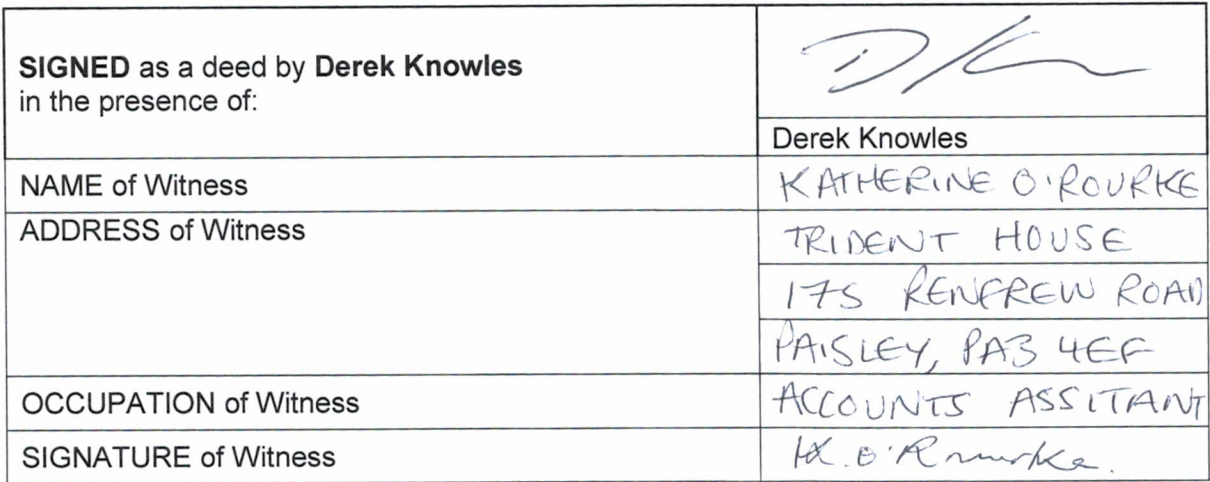 SIGNED as a deed by Derek Knowles
in the presence of:
D K
Derek Knowles
NAME of Witness
KATHERINE O'ROURKE
ADDRESS of Witness
TRIDENT HOUSE
175 RENFREW ROAD
PAISLEY, PA3 4EF
OCCUPATION of Witness
ACCOUNTS ASSITANT
SIGNATURE of Witness
K. O'Rourke.